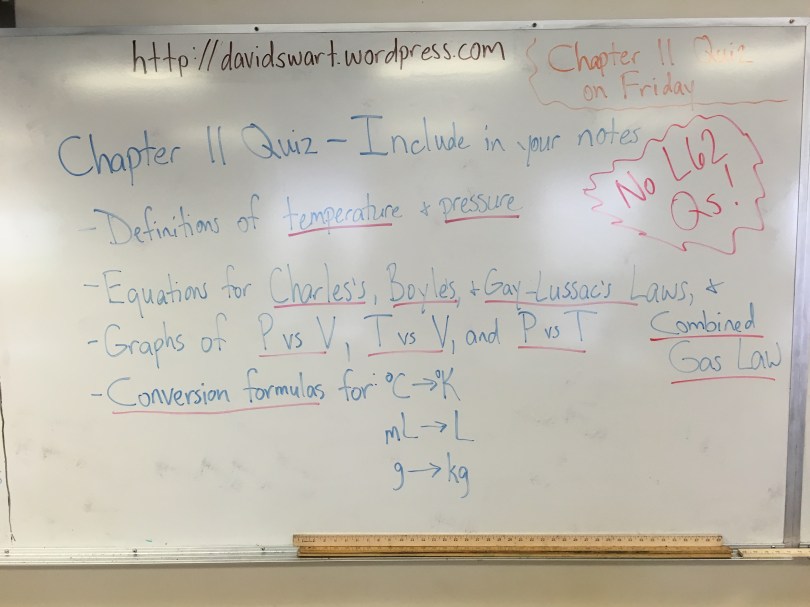 http://davidswart.wordpress.com
Chapter 11 Quiz
on Friday
Chapter 11 Quiz - Include in your notes
No L62
Qs!
- Definitions of temperature & pressure
- Equations for Charles's, Boyle's, & Gay-Lussac's Laws, &
Combined
Gas Law
- Graphs of P vs V, T vs V, and P vs T
- Conversion formulas for: °C → °K
mL → L
g → kg